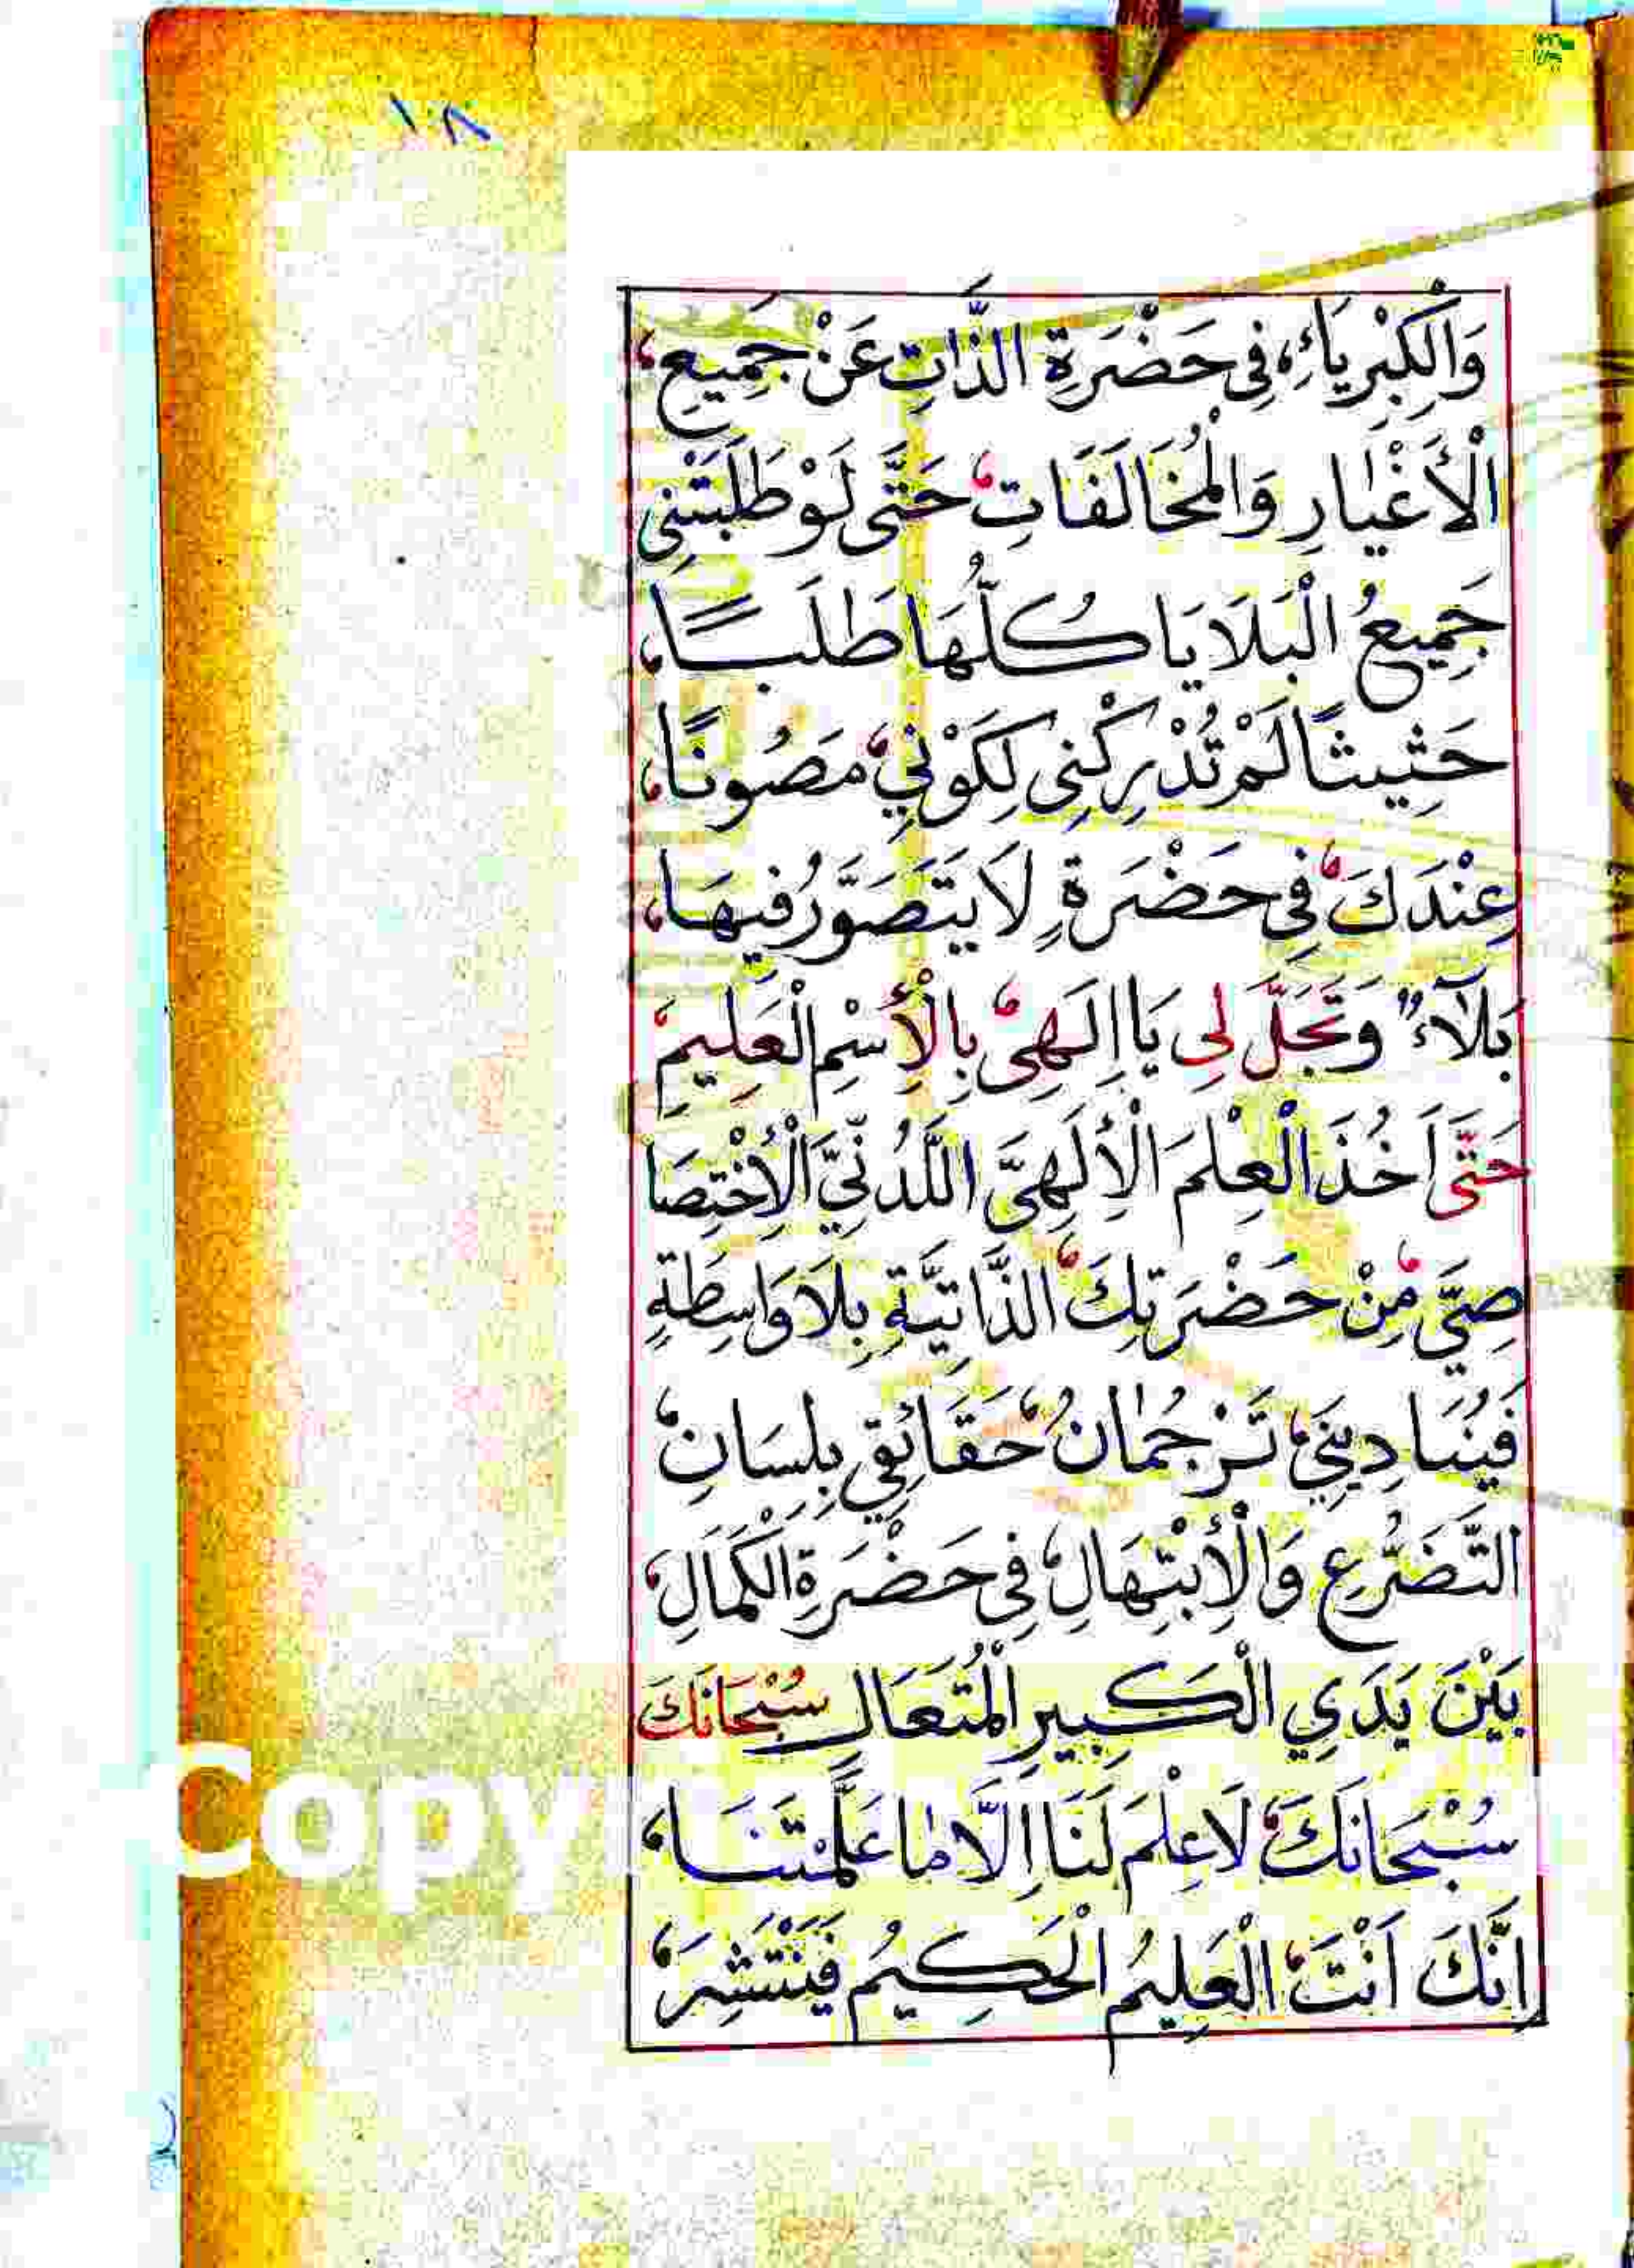 ١٨
وَالْكِبْرِيَاءِ، فِى حَضْرَةِ الذَّاتِ عَنْ جَمِيعِ،
الْأَغْيَارِ وَالْمُخَالَفَاتِ، حَتَّى لَوْ طَلَبَتْنِى
جَمِيعُ الْبَلَايَا كُلُّهَا طَلَبًا،
حَثِيثًا لَمْ تُدْرِكْنِى لِكَوْنِي، مَصُونًا،
عِنْدَكَ، فِى حَضْرَةٍ لَا يَتَصَوَّرُ فِيهَا،
بَلَآءٌ وَتَجَلَّ لِى يَا اِلَهِىْ، بِالْأِسْمِ الْعَلِيمِ،
حَتَّى اَخُذَ الْعِلْمَ الْأِلَهِىَّ اللَّدُنِّيَّ الْأِخْتِصَا
صِىَّ، مِنْ حَضْرَتِكَ، الذَّاتِيَّةِ بِلَا وَاسِطَةٍ
فَيُنَادِيَنِيْ، تَرْجُمَانُ، حَقَائِقِي بِلِسَانِ،
التَّضَرُّعِ وَالْأِبْتِهَالِ، فِى حَضْرَةِ الْكَمَالِ،
بَيْنَ يَدَيِ الْكَبِيرِ الْمُتَعَالِ سُبْحَانَكَ
سُبْحَانَكَ، لَا عِلْمَ لَنَا اِلَّا مَا عَلَّمْتَنَا،
اِنَّكَ اَنْتَ، الْعَلِيمُ الْحَكِيمُ فَيَنْتَشِرَ،
Copy